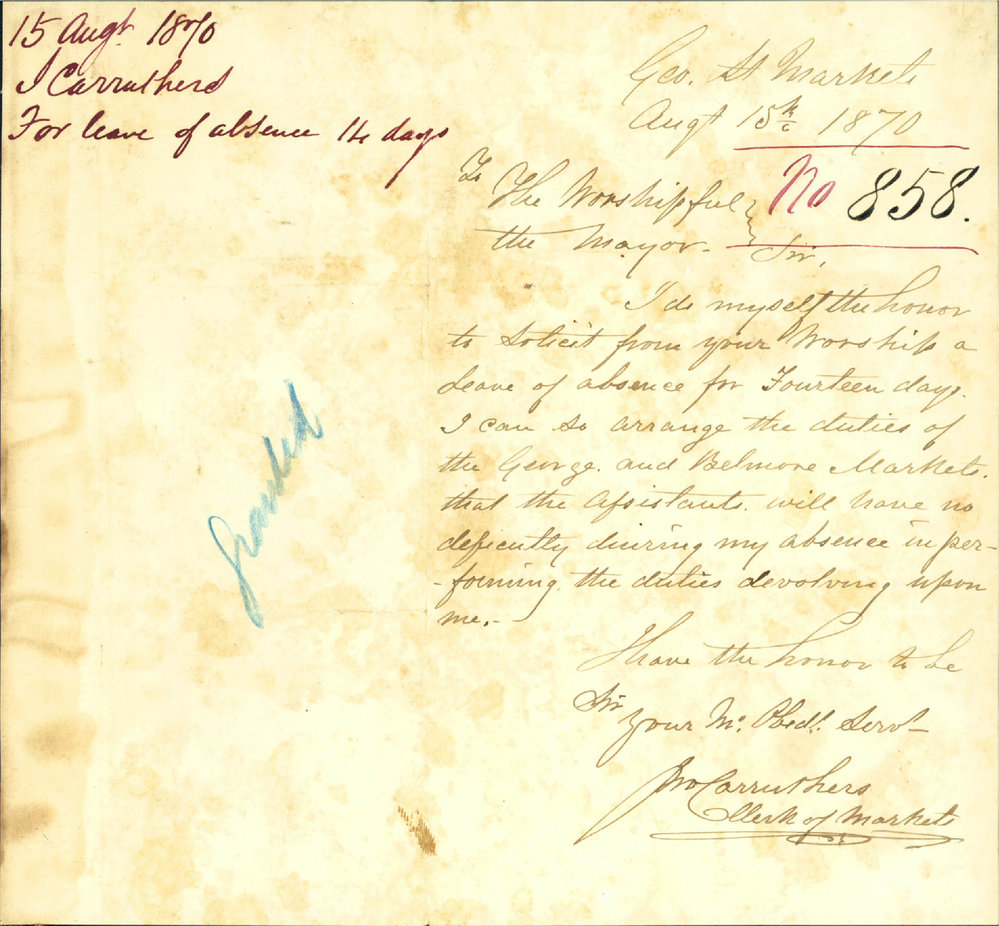 15 Augt. 1870
J Carruthers
For leave of absence 14 days
Geo. St Markets
Augt 15th 1870
No 858.
To The Worshipful
the Mayor. Sir,
I do myself the honor
to Solicit from your Worship a
Leave of absence for Fourteen days.
I can so arrange the duties of
the George. and Belmore Markets.
that the Assistants. will have no
deficulty during my absence in per-
-forming the duties devolving upon
me.-
I have the honor to be
Sir
Your Mo. Obedt. Servt
Jno Carruthers
Clerk of Markets
Granted